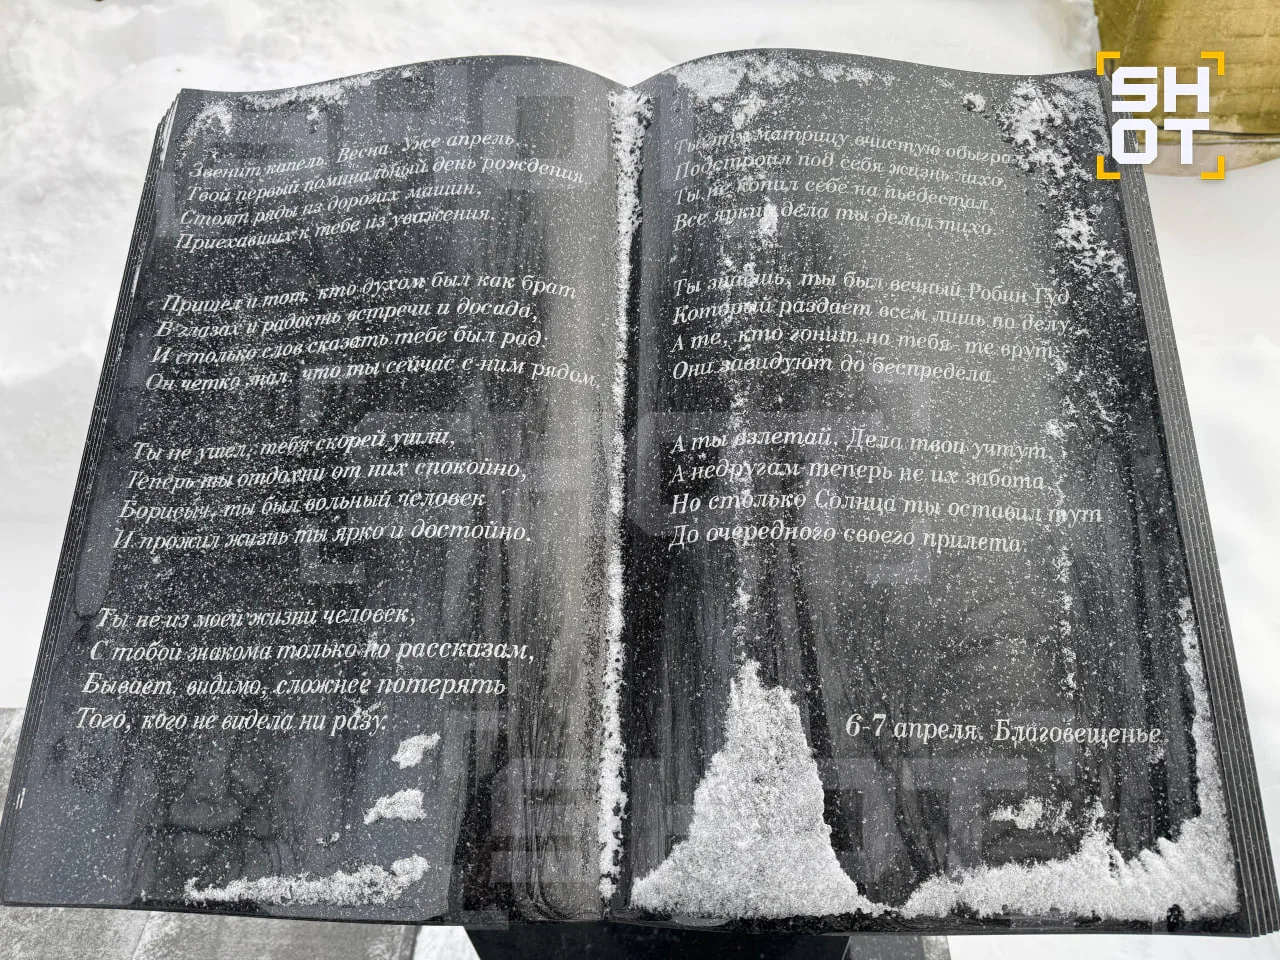 Звенит капель. Весна. Уже апрель...
Твой первый поминальный день рождения
Стоят ряды из дорогих машин,
Приехавших к тебе из уважения.
Пришел и тот, кто духом был как брат
В глазах и радость встречи и досада,
И столько слов сказать тебе был рад.
Он четко знал, что ты сейчас с ним рядом.
Ты не ушел, тебя скорей ушли,
Теперь ты отдохни от них спокойно,
Борисыч, ты был вольный человек
И прожил жизнь ты ярко и достойно.
Ты не из моей жизни человек,
С тобой знакома только по рассказам,
Бывает, видимо, сложнее потерять
Того, кого не видела ни разу.
Ты эту матрицу вчистую обыграл
Подстроил под себя жизнь лихо,
Ты не копил себе на пьедестал,
Все яркие дела ты делал тихо.
Ты знаешь, ты был вечный Робин Гуд
Который раздает всем лишь по делу,
А те, кто гонит на тебя- те врут,
Они завидуют до беспредела.
А ты взлетай. Дела твои учтут,
А недругам теперь не их забота.
Но столько Солнца ты оставил тут
До очередного своего прилета.
6-7 апреля. Благовещенье.
SH
OT